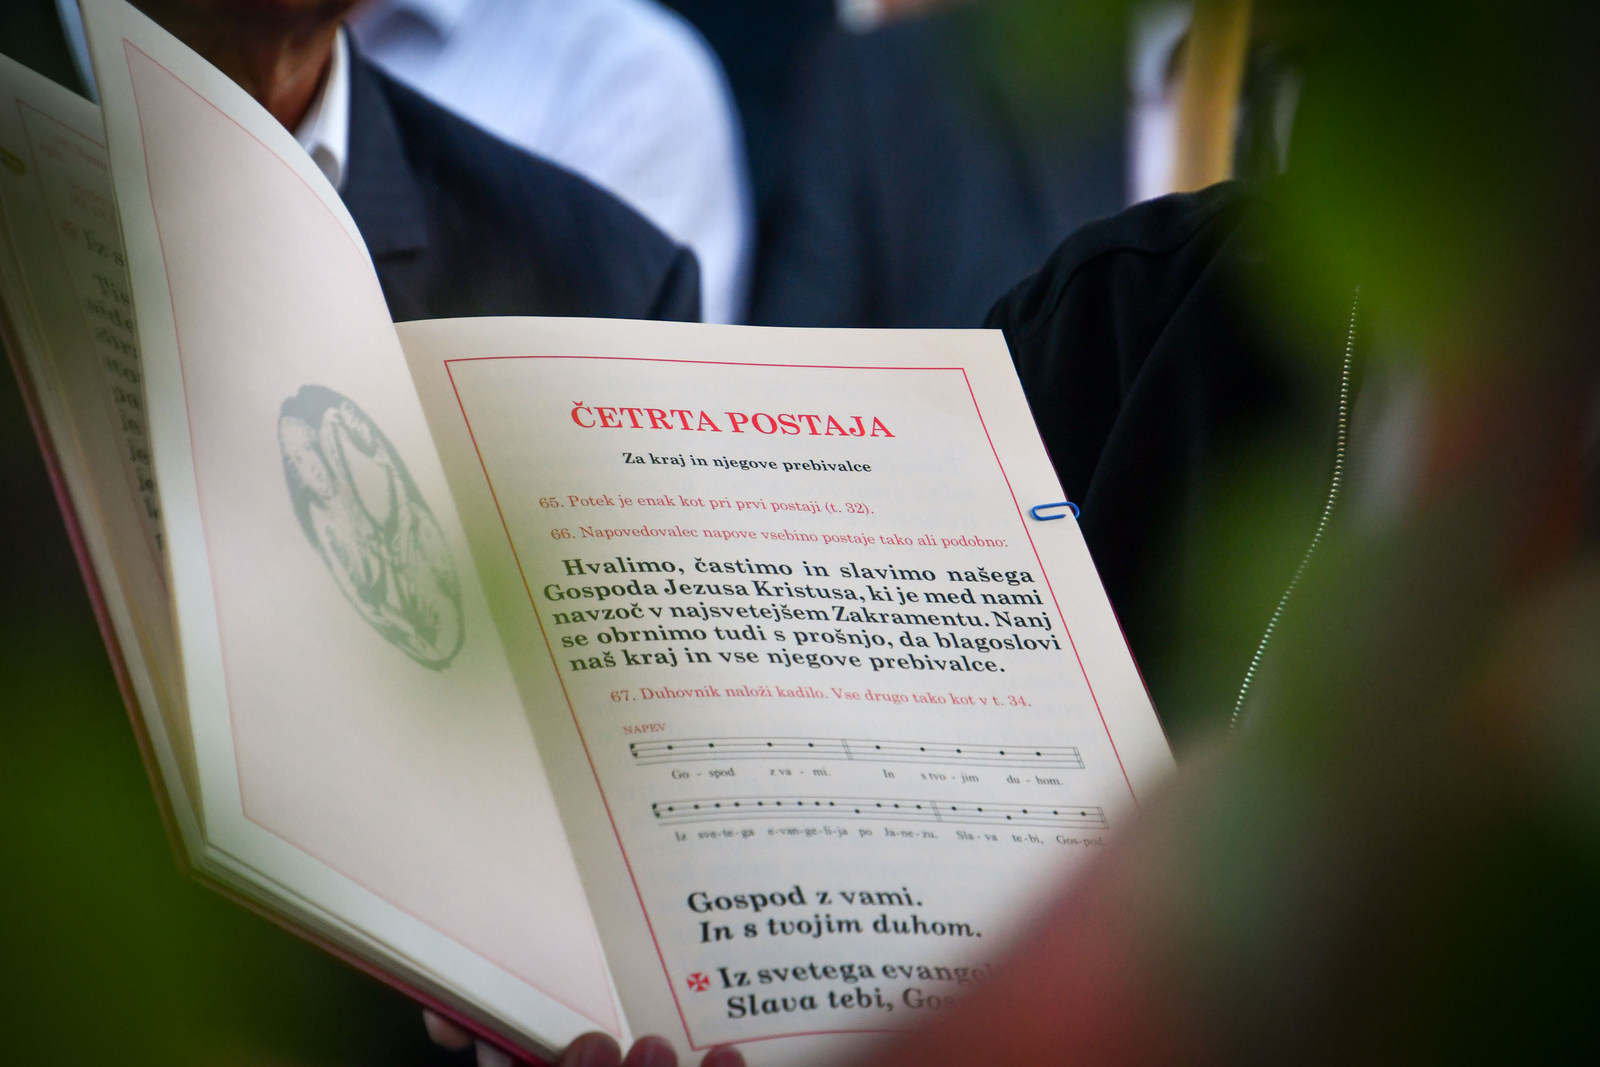 ČETRTA POSTAJA
Za kraj in njegove prebivalce
65. Potek je enak kot pri prvi postaji (t. 32).
66. Napovedovalec napove vsebino postaje tako ali podobno:
Hvalimo, častimo in slavimo našega
Gospoda Jezusa Kristusa, ki je med nami
navzoč v najsvetejšem Zakramentu. Nanj
se obrnimo tudi s prošnjo, da blagoslovi
naš kraj in vse njegove prebivalce.
67. Duhovnik naloži kadilo. Vse drugo tako kot v t. 34.
NAPEV
Go - spod z va - mi. In s tvo - jim du - hom.
Iz sve-te-ga e-van-ge-li-ja po Ja-ne-zu. Sla-va te-bi, Gos-pod.
Gospod z vami.
In s tvojim duhom.
✠ Iz svetega
Slava tebi,